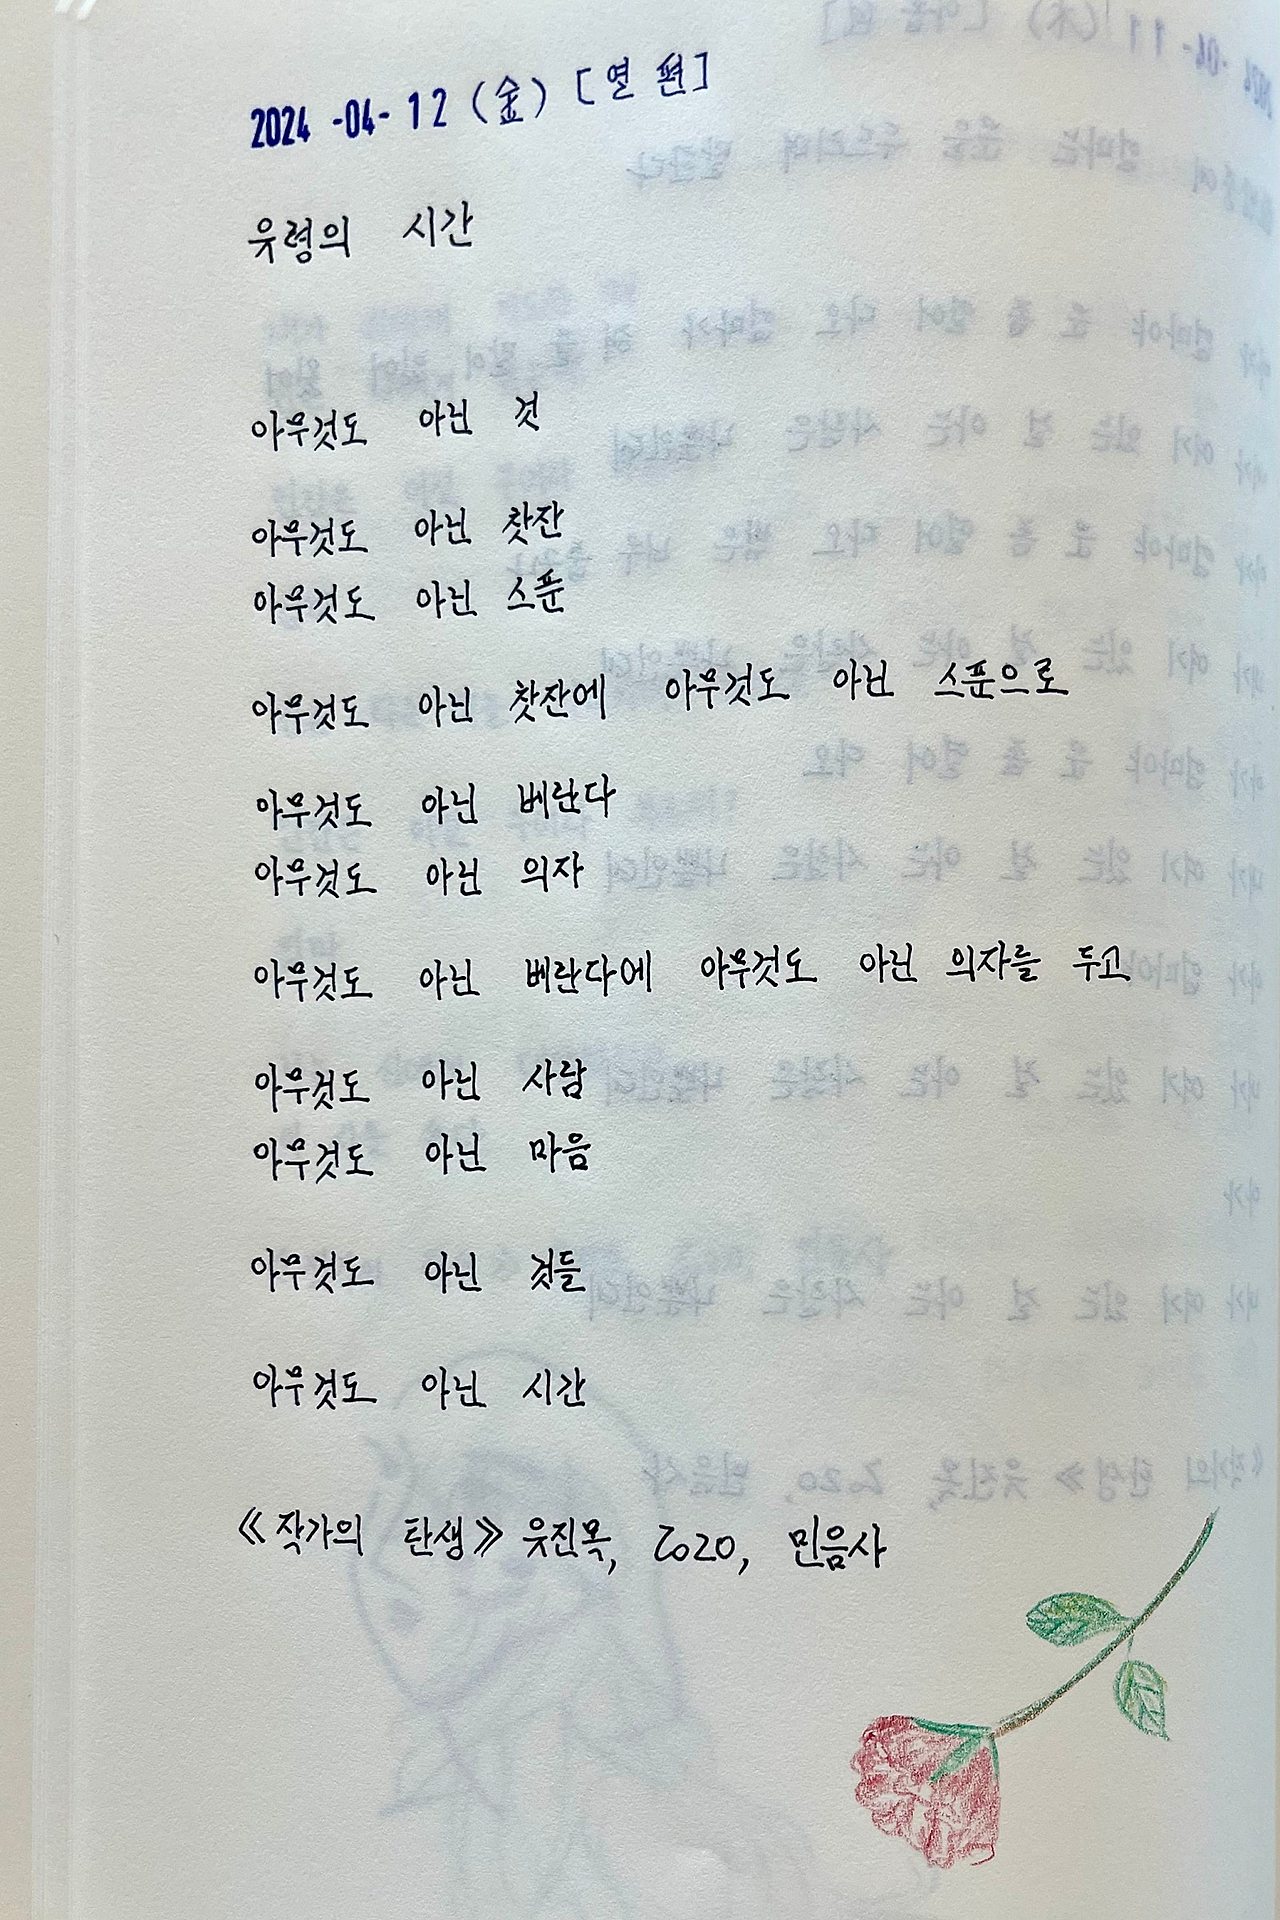 2024 -04- 12 (金) [열 편]
유령의 시간
아무것도 아닌 것
아무것도 아닌 찻잔
아무것도 아닌 스푼
아무것도 아닌 찻잔에 아무것도 아닌 스푼으로
아무것도 아닌 베란다
아무것도 아닌 의자
아무것도 아닌 베란다에 아무것도 아닌 의자를 두고
아무것도 아닌 사람
아무것도 아닌 마음
아무것도 아닌 것들
아무것도 아닌 시간
《작가의 탄생》 유진목, 2020, 민음사